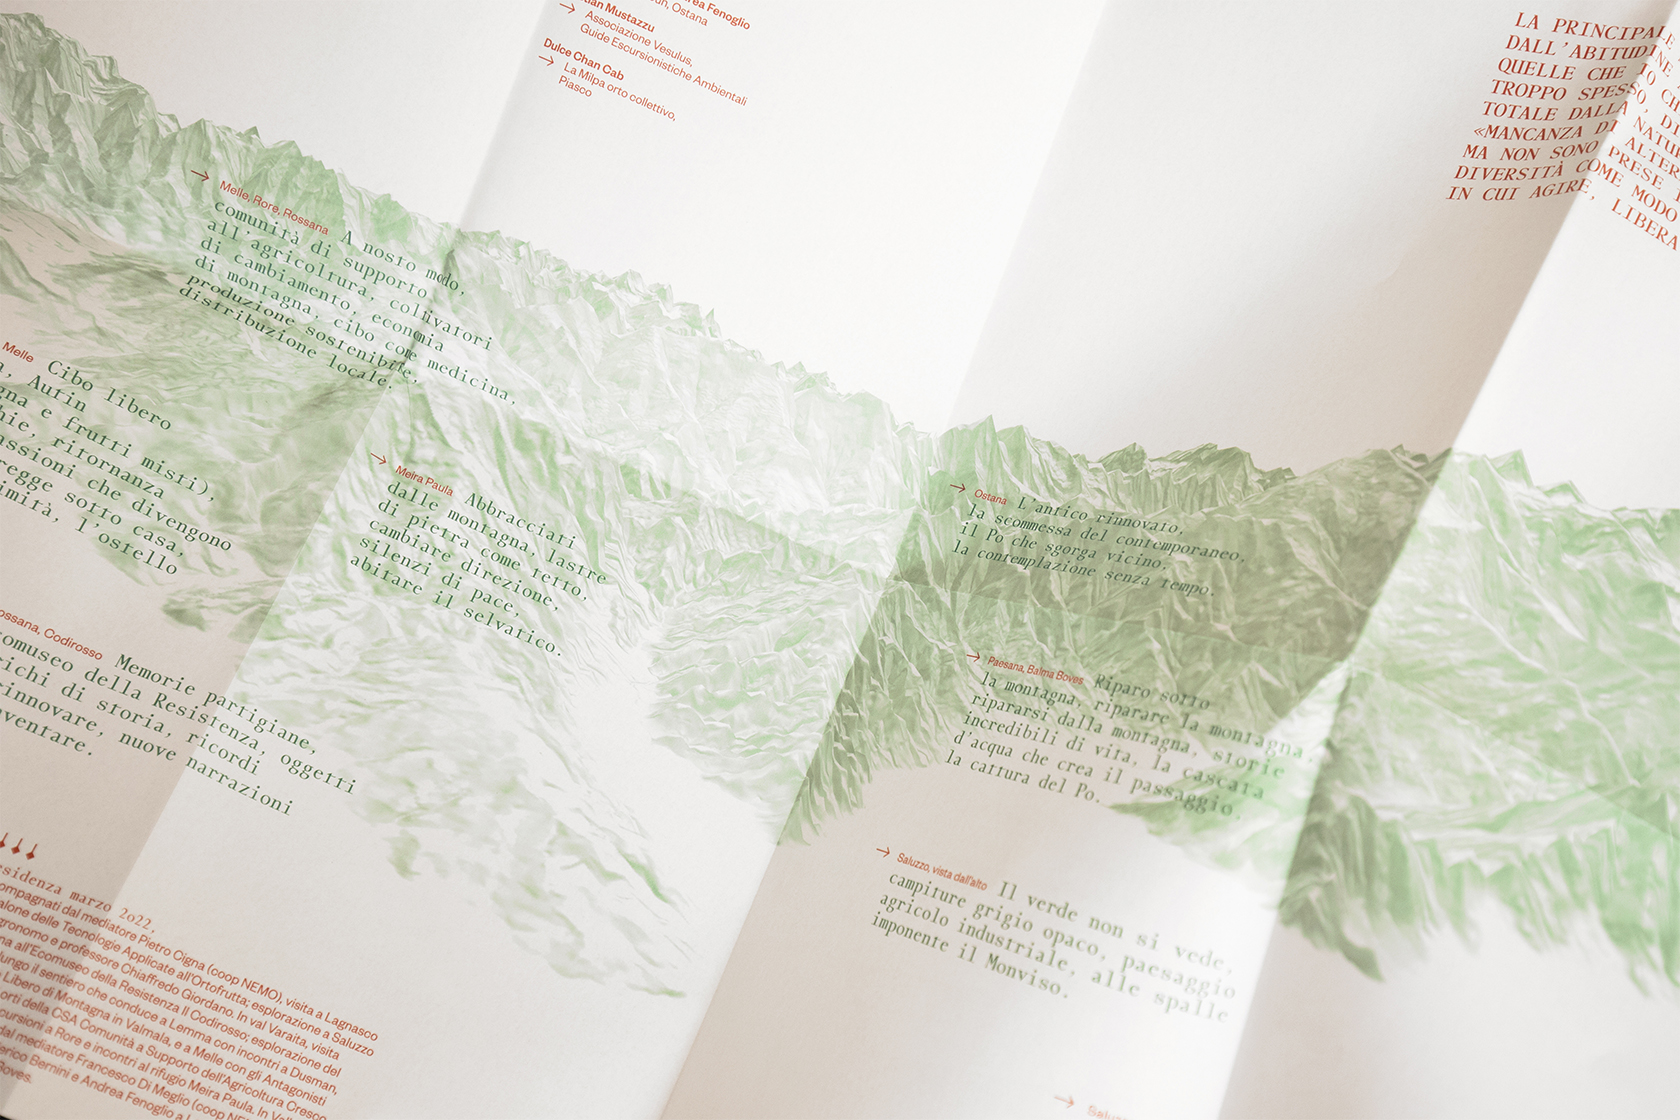 Andrea Fenoglio
Ostana
Mustazzu
Associazione Vesulus,
Guide Escursionistiche Ambientali
Dulce Chan Cab
→ La Milpa orto collettivo,
Piasco
LA PRINCIPALE
DALL'ABITUDINE
QUELLE CHE IO
TROPPO SPESSO, DI
TOTALE DALLA
«MANCANZA DI
MA NON SONO PRESE
DIVERSITÀ COME MODO
IN CUI AGIRE, LIBERA
→ Melle, Rore, Rossana
A nosto modo,
comunità di supporto
all'agricoltura, coltivatori
di cambiamento, economia
di montagna, cibo come medicina,
produzione sostenibile,
distribuzione locale.
Melle Cibo libero
Autin
e frutti misti),
ritornanza
che divengono
regge sotto casa,
l'ostello
→ Meira Paula Abbracciari
dalle montagna, lastre
di pietra come tetto,
cambiare direzione,
silenzi di pace,
abitare il selvatico.
→ Ostana L'antico rinnovato,
la scommessa del contemporaneo,
il Po che sgorga vicino,
la contemplazione senza tempo.
→ Paesana, Balma Boves Riparo sotto
la montagna, riparare la montagna,
ripararsi dalla montagna, storie
incredibili di vita, la cascata
d'acqua che crea il passaggio,
la cattura del Po.
→ Saluzzo, vista dall'alto Il verde non si vede,
campiture grigio opaco, paesaggio
agricolo industriale, alle spalle
imponente il Monviso.
Rossana, Codirosso Memorie partigiane,
Ecomuseo della Resistenza, oggetti
di storia, ricordi
rinnovare, nuove narrazioni
marzo 2022,
dal mediatore Pietro Cigna (coop NEMO), visita a Lagnasco
delle Tecnologie Applicate all'Ortofrutta; esplorazione a Saluzzo
e professore Chiaffredo Giordano. In val Varaita, visita
all'Ecomuseo della Resistenza Il Codirosso; esplorazione del
il sentiero che conduce a Lemma con incontri a Dusman,
Libero di Montagna in Valmala, e a Melle con gli Antagonisti
orti della CSA Comunità a Supporto dell'Agricoltura Cresco
a Rore e incontri al rifugio Meira Paula. In
mediatore Francesco Di Meglio (coop
Bernini e Andrea Fenoglio a
Boves.
→ Saluzzo